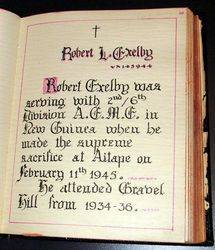 Robert L. Exelby
VX145944
Robert Exelby was
serving with 2nd 6th
Division A.E.M.E. in
New Guinea when he
made the supreme
sacrifice at Aitape on
February 11th 1945.
He attended Gravel
Hill from 1934-36.